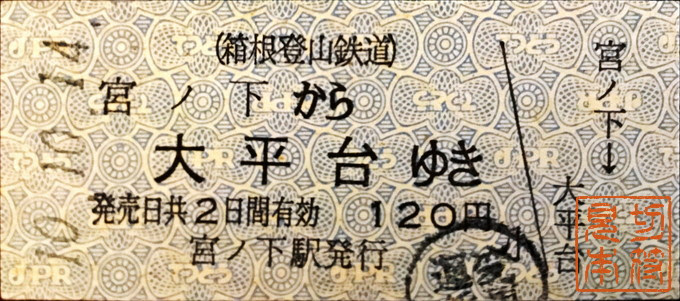 10.10.14
(箱根登山鉄道)
宮ノ下から
大平台ゆき
発売日共2日間有効 120円
宮ノ下駅発行
宮ノ下→大平台
小